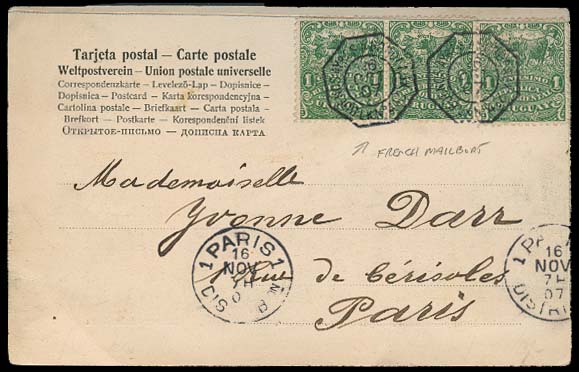 Tarjeta postal — Carte postale
Weltpostverein — Union postale universelle
Correspondenzkarte — Levelező-Lap — Dopisnice
Dopisnica — Postcard — Karta korespondencyjna
Cartolina postale — Briefkaart — Carta postala
Brefkort — Postkarte — Korespondenční listek
ОТКРЫТОЕ-ПИСЬМО — ДОПИСНА КАРТА
FRENCH MAILBOAT
Mademoiselle
Yvonne Darr
Rue de Cérisoles
Paris
1 PARIS 1
16
NOV
7H
DIS
16
NOV
7H
07
DISTRI